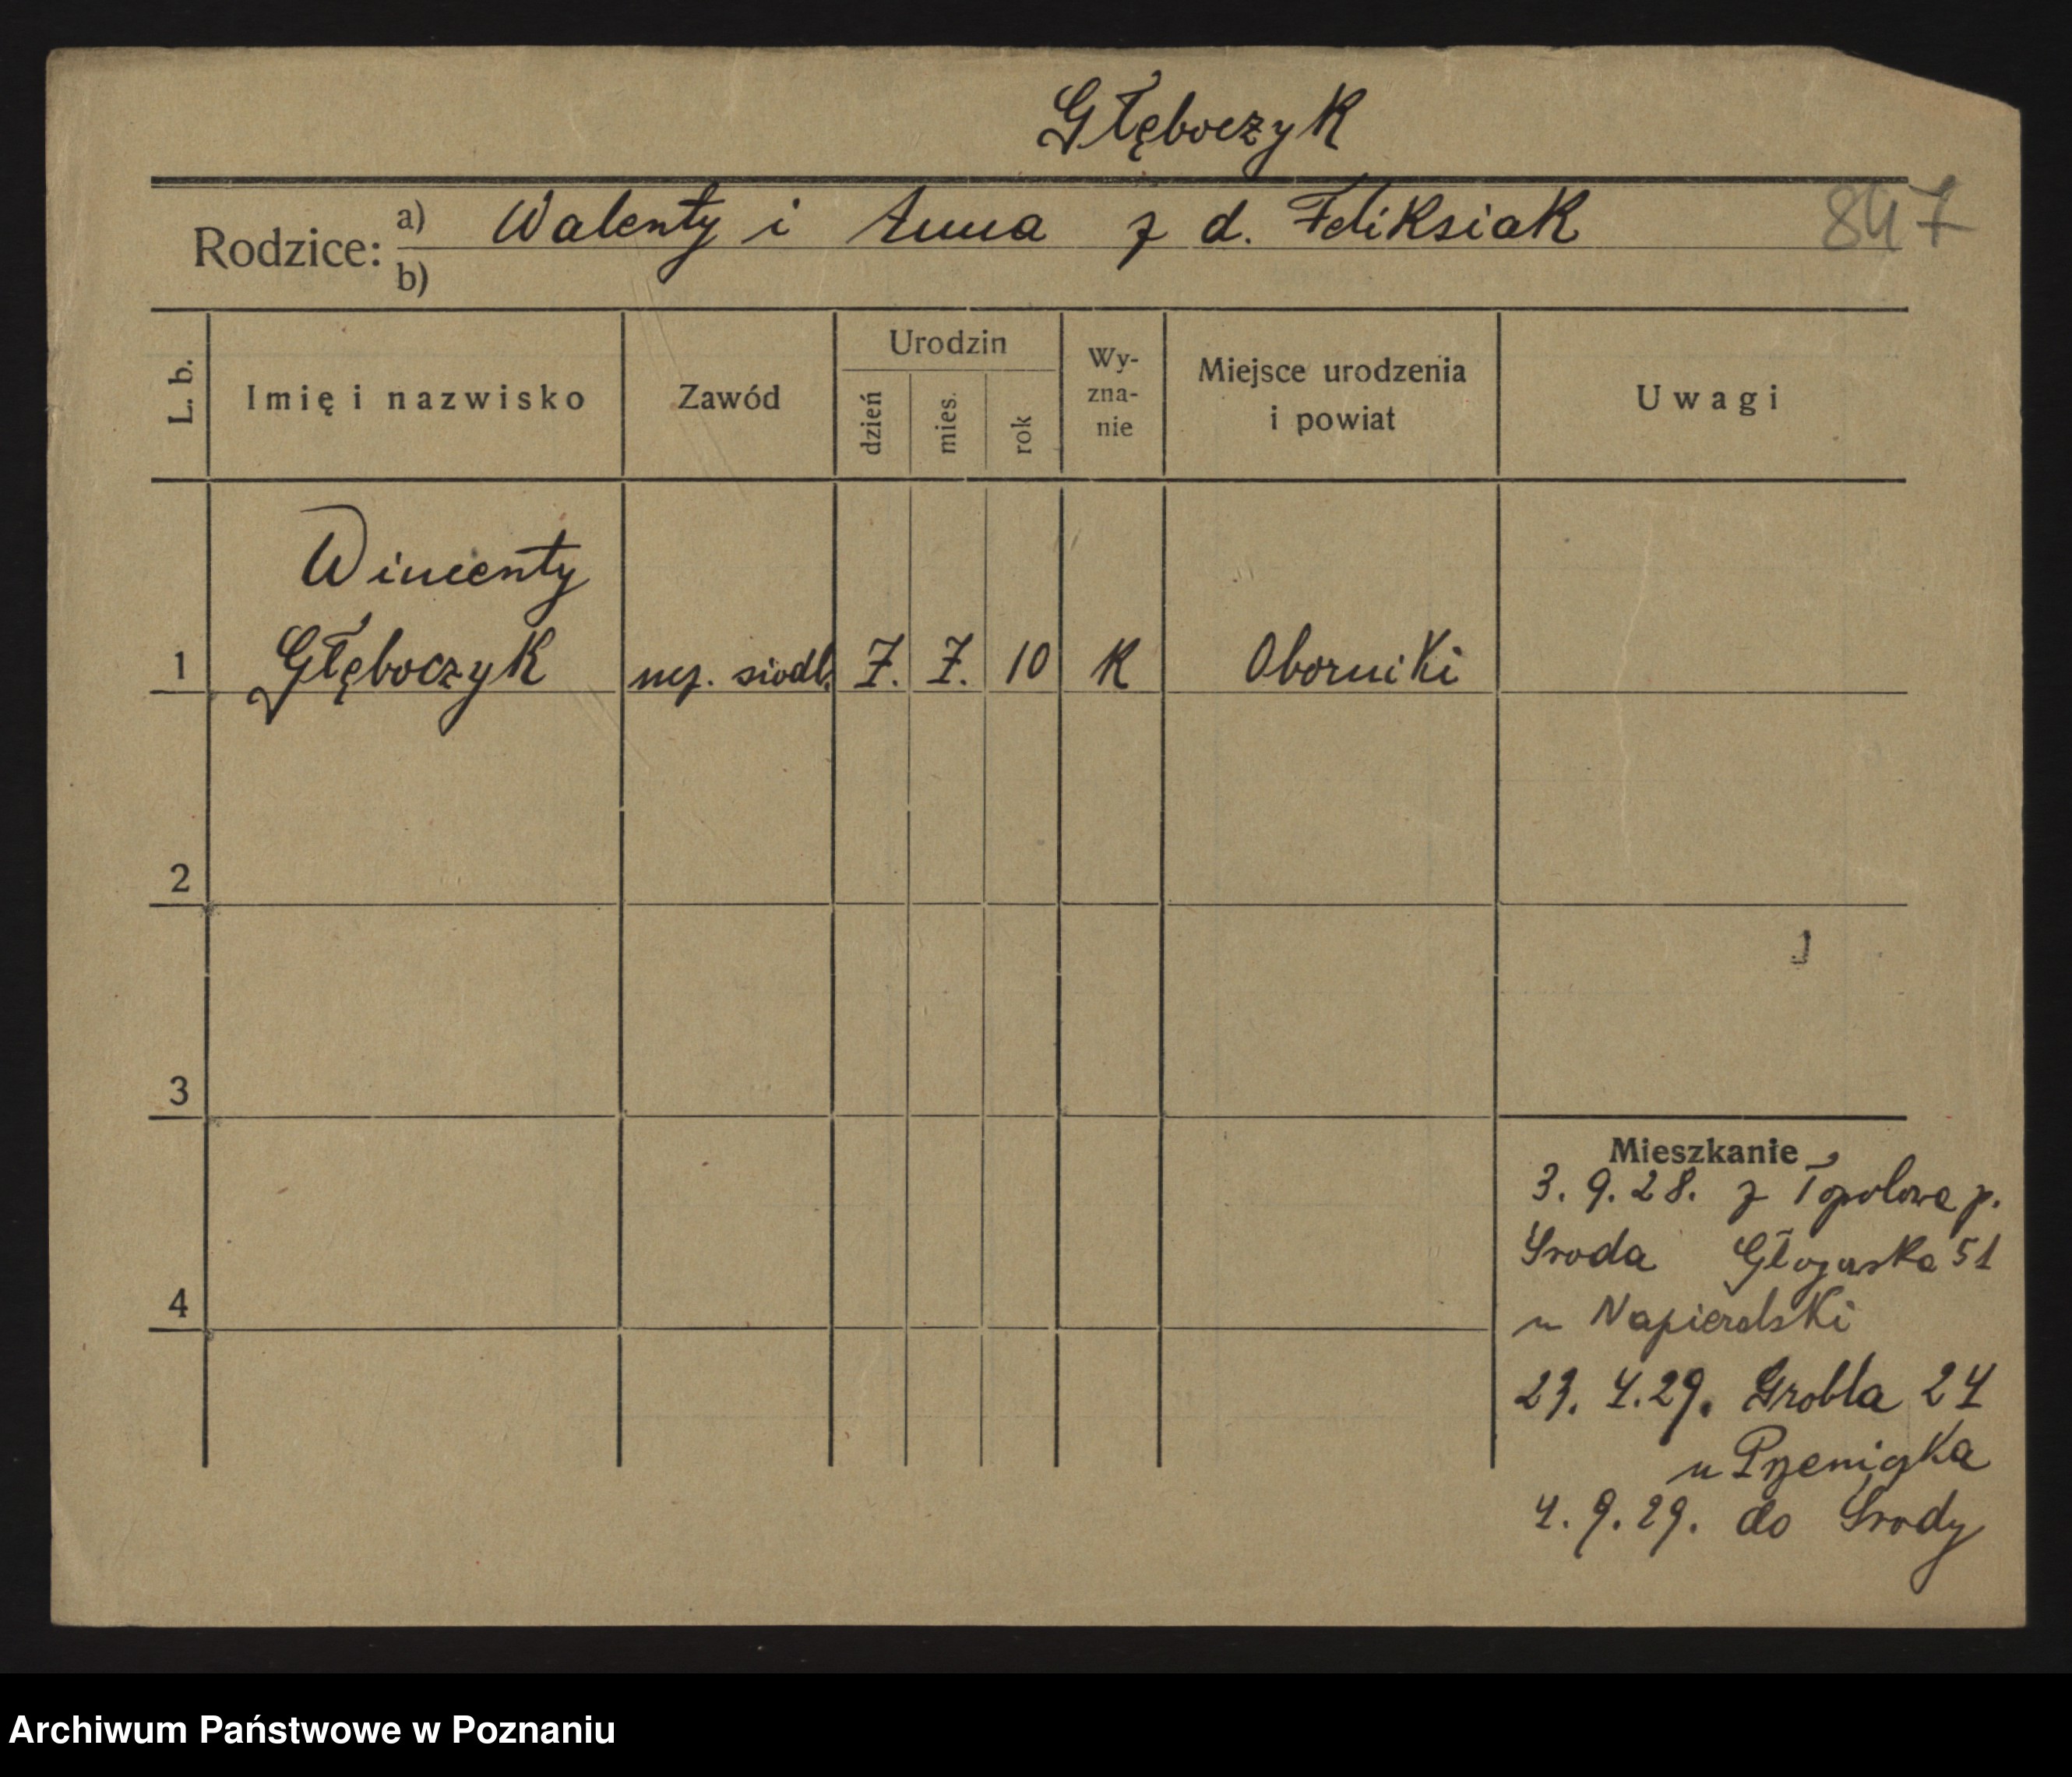 Głęboczyk
Rodzice: a) Walenty i Anna z d. Feliksiak 847
b)
L. b. Imię i nazwisko Zawód Urodzin dzień mies. rok Wy-zna-nie Miejsce urodzenia i powiat Uwagi
Wincenty
1 Głęboczyk ucz. siodl. 7. 7. 10 K Oborniki
2
3
Mieszkanie
3. 9. 28. z Topolowa p.
Środa Głogowska 51
4
u Napieralski
23. 4. 29. Grobla 24
u
4. 9. 29. do Środy
Archiwum Państwowe w Poznaniu